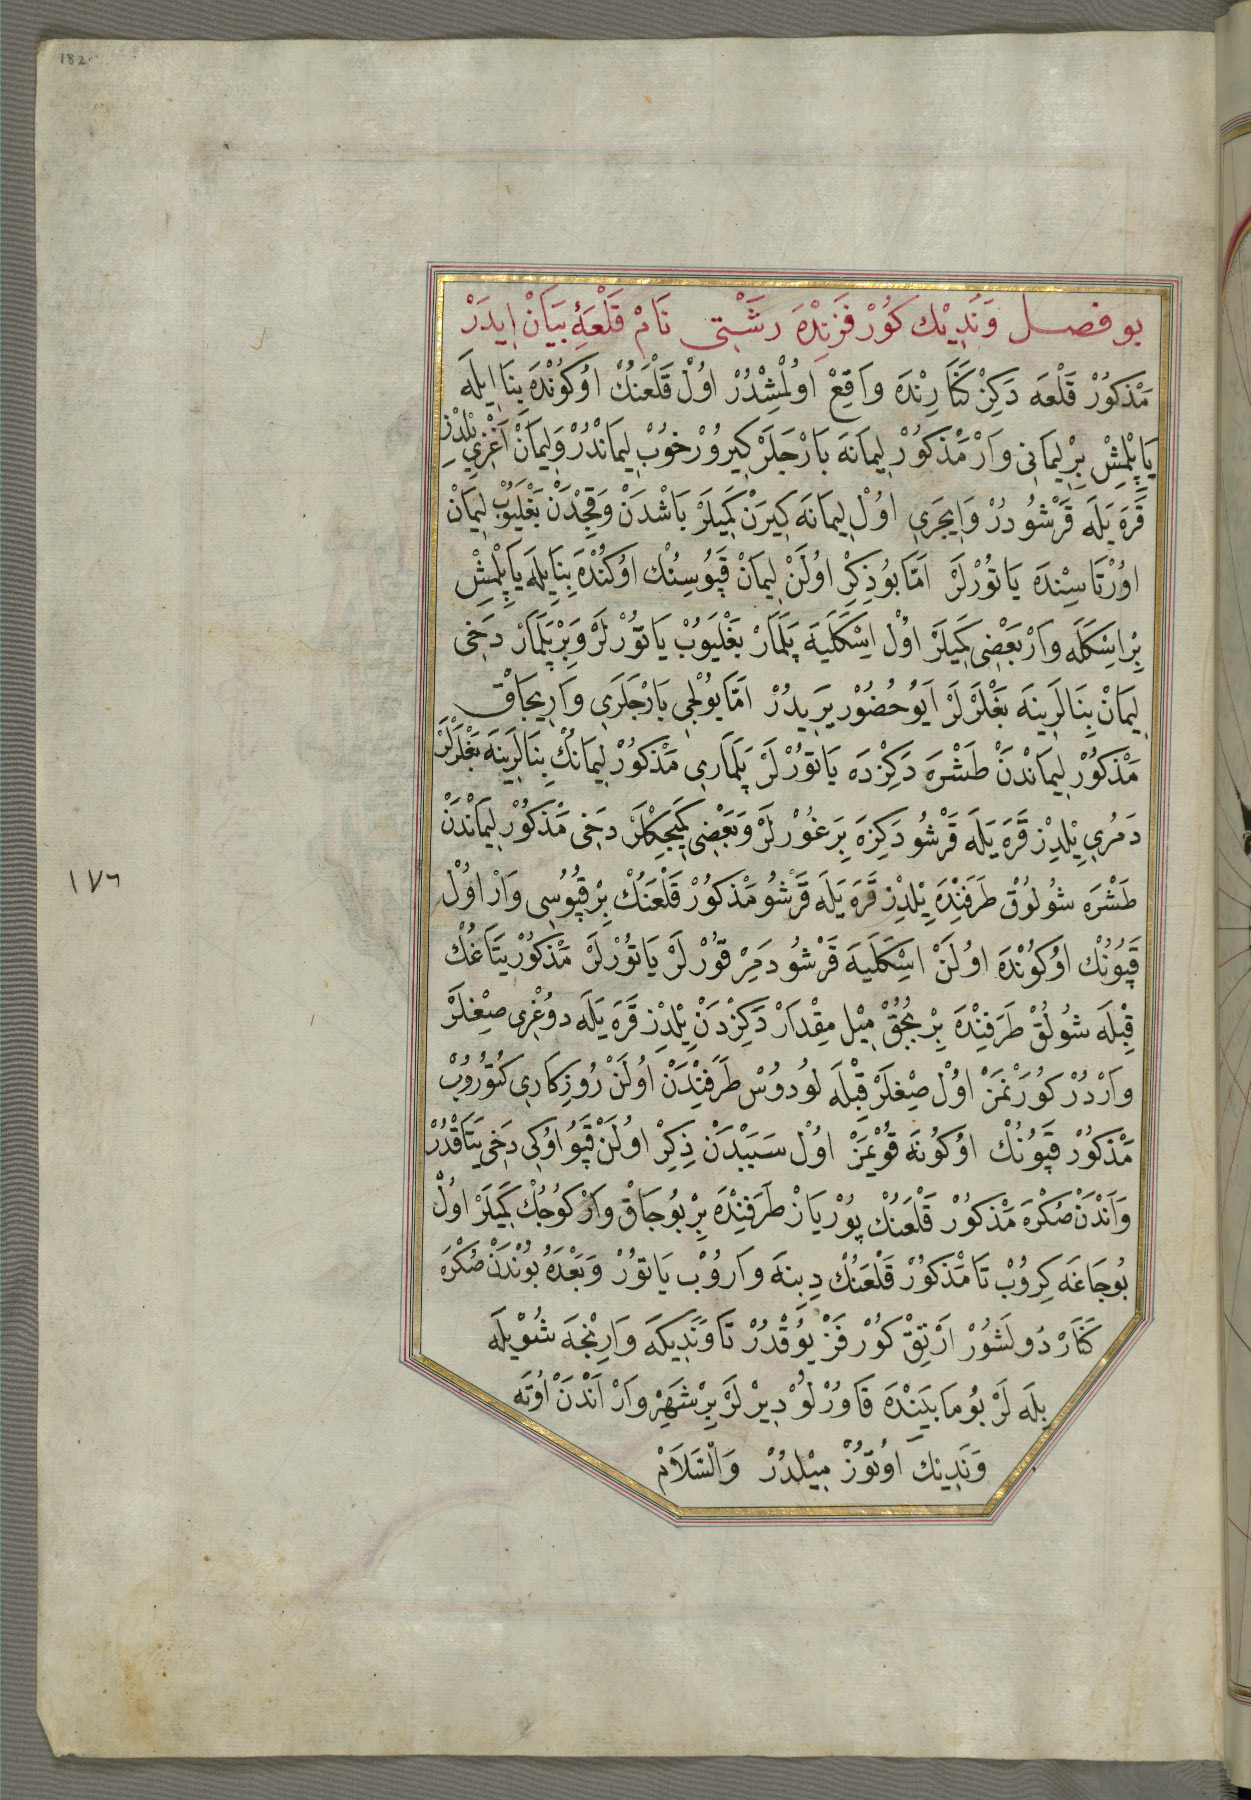 182
بو فصل وَنَدِيْك كُورْفَزِنْدَه رشَتْتِى نَامْ قَلْعَهٔ بَيَانْ اِيدَرْ
مَذْكُورْ قَلْعَه دَكِزْ كَنَارِنْدَه وَاقِعْ اوُلْمِشْدُرْ اوُلْ قَلْعَنُكْ اوُكُونْدَه بِنَا اِيلَه
يَاپِلْمِشْ بِرْ لِيمَانِى وَارْ مَذْكُورْ لِيمَانَه بَارْجَلَرْ كِيرُورْ خُوبْ لِيمَانْدُرْ وَلِيمَانْ آغْزِي يِلْدِزْ
قَرَه يَلَه قَرْشُو دُرْ وَاِيچَرِي اوُلْ لِيمَانَه كِيرَنْ كَمِيلَرْ بَاشْدَنْ وَقِچْدَنْ بَغْلَيُوبْ لِيمَانْ
اوُرْتَاسِنْدَه يَاتُورْلَرْ اَمَّا بُو ذِكِرْ اوُلَنْ لِيمَانْ قَپُوسِنُكْ اوُكُنْدَه بِنَايِلَه يَاپِلْمِشْ
بِرْ اسِكَلَه وَارْ بَعْضِى كَمِيلَرْ اوُلْ اسِكَلَيَه پَلَمَارْ بَغْلَيُوبْ يَاتُورْلَرْ وَبِرْ پَلَمَارْ دَخِى
لِيمَانْ بِنَالَرِينَه بَغْلَرْلَرْ اَيُو حُضُورْ يَرِيدُرْ اَمَّا يُولْجِي بَارْجَلَرِي وَارِيجَاقْ
مَذْكُورْ لِيمَانْدَنْ طَشْرَه دَكِزْدَه يَاتُورْلَرْ پَلَمَارِي مَذْكُورْ لِيمَانُكْ بِنَالَرِينَه بَغْلَرْلَرْ
دَمُرِي يِلْدِزْ قَرَه يَلَه قَرْشُو دَكِزَه بِرَغُورْلَرْ وَبَعْضِى كَمِيجِكْلَرْ دَخِى مَذْكُورْ لِيمَانْدَنْ
طَشْرَه شُولُوقْ طَرَفِنْدَه يِلْدِزْ قَرَه يَلَه قَرْشُو مَذْكُورْ قَلْعَنُكْ بِرْ قَپُوسِى وَارْ اوُلْ
قَپُونُكْ اوُكُونْدَه اوُلَنْ اسِكَلَيَه قَرْشُو دَمِرْ قُورْلَرْ يَاتُورْلَرْ مَذْكُورْ يَتَاغُكْ
قِبْلَه شُولُقْ طَرَفِنْدَه بِرْ بُجُقْ مِيْل مِقْدَارْ دَكِزْدَنْ يِلْدِزْ قَرَه يَلَه دُوغْرِى صِغْلَرْ
وَارْدُرْ كُورَنْمَزْ اوُلْ صِغْلَرْ قِبْلَه لُودُوسْ طَرَفِنْدَنْ اوُلَنْ رُوزِكَارِي كُتُورُوبْ
مَذْكُورْ قَپُونُكْ اوُكُونَه قُوْيْمَزْ اوُلْ سَبَبْدَنْ ذِكِرْ اوُلَنْ قَپُو اوُكِي دَخِى يَتَاقْدُرْ
وَانْدَنْ صُكْرَه مَذْكُورْ قَلْعَنُكْ پُورْيَازْ طَرَفِنْدَه بِرْ بُوجَاقْ وَارْ كُوجُكْ كَمِيلَرْ اوُلْ
بُوجَاغَه كِرُوبْ تَا مَذْكُورْ قَلْعَنُكْ دِبِنَه وَارُوبْ يَاتُورْ وَبَعْدَهُ بُونْدَنْ صُكْرَه
كَنَارْ دُولَشُورْ اَرْتِقْ كُورْفَزْ يُوقْدُرْ تَا وَنَدِيكَه وَارِنْجَه شُوْيْلَه
بِلَه لَرْ بُو مَابَيْنْدَه قَاوُرْلُو دِيرْلَرْ بِرْ شَهِرْ وَارْ اَنْدَنْ اوُتَه
وَنَدِيكْ اوُتُوزْ مِيْلدُرْ وَالسَّلَامْ
١٧٦